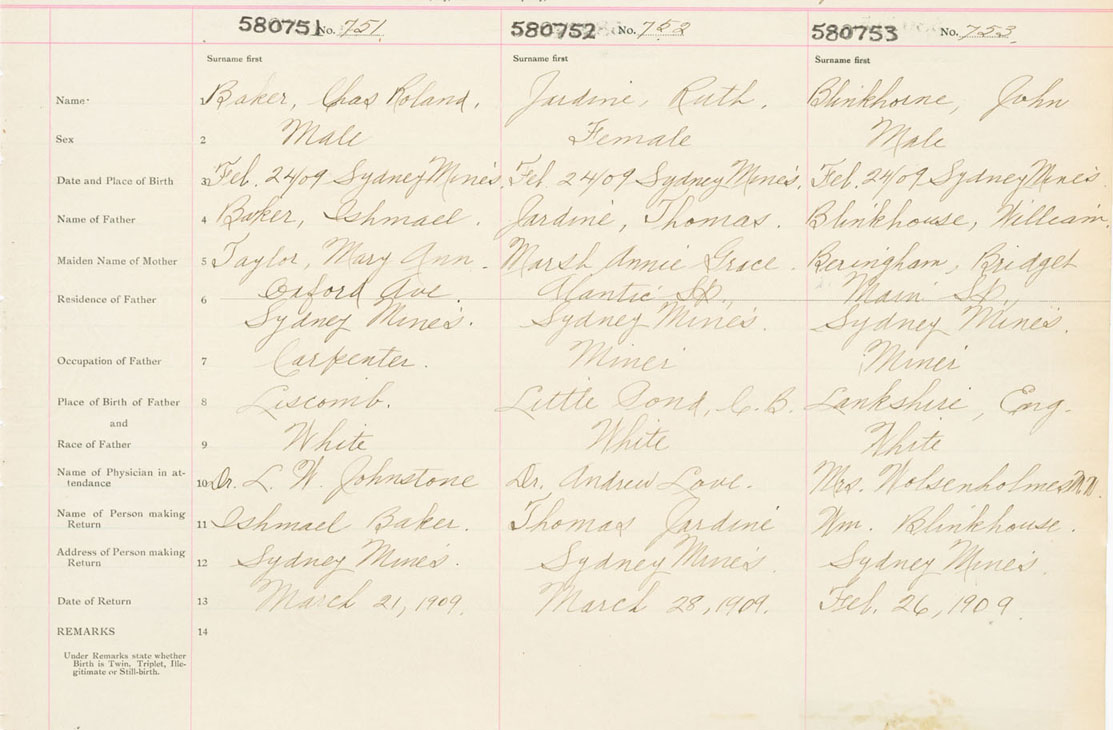 580751 No. 751 580752 No. 752 580753 No. 753
Surname first Surname first Surname first
Name 1 Baker, Chas Roland. Jardine, Ruth. Blinkhorne, John
Sex 2 Male Female Male
Date and Place of Birth 3 Feb. 24/09 Sydney Mines. Feb. 24/09 Sydney Mines. Feb. 24/09 Sydney Mines
Name of Father 4 Baker, Ishmael. Jardine, Thomas. Blinkhouse, William.
Maiden Name of Mother 5 Taylor, Mary Ann. Marsh Annie Grace. Beringham, Bridget
Residence of Father 6 Oxford Ave. Atlantic St., Main St.,
Sydney Mines. Sydney Mines. Sydney Mines.
Occupation of Father 7 Carpenter. Miner Miner
Place of Birth of Father 8 Liscomb. Little Pond, C.B. Lankshire, Eng.
and
Race of Father 9 White White White
Name of Physician in at-
tendance 10 Dr. L. W. Johnstone Dr. Andrew Love. Mrs. Wolsenholmes
Name of Person making
Return 11 Ishmael Baker. Thomas Jardine Wm. Blinkhouse.
Address of Person making
Return 12 Sydney Mines. Sydney Mines. Sydney Mines.
Date of Return 13 March 21, 1909. March 28, 1909. Feb. 26, 1909
REMARKS 14
Under Remarks state whether
Birth is Twin, Triplet, Ille-
gitimate or Still-birth.